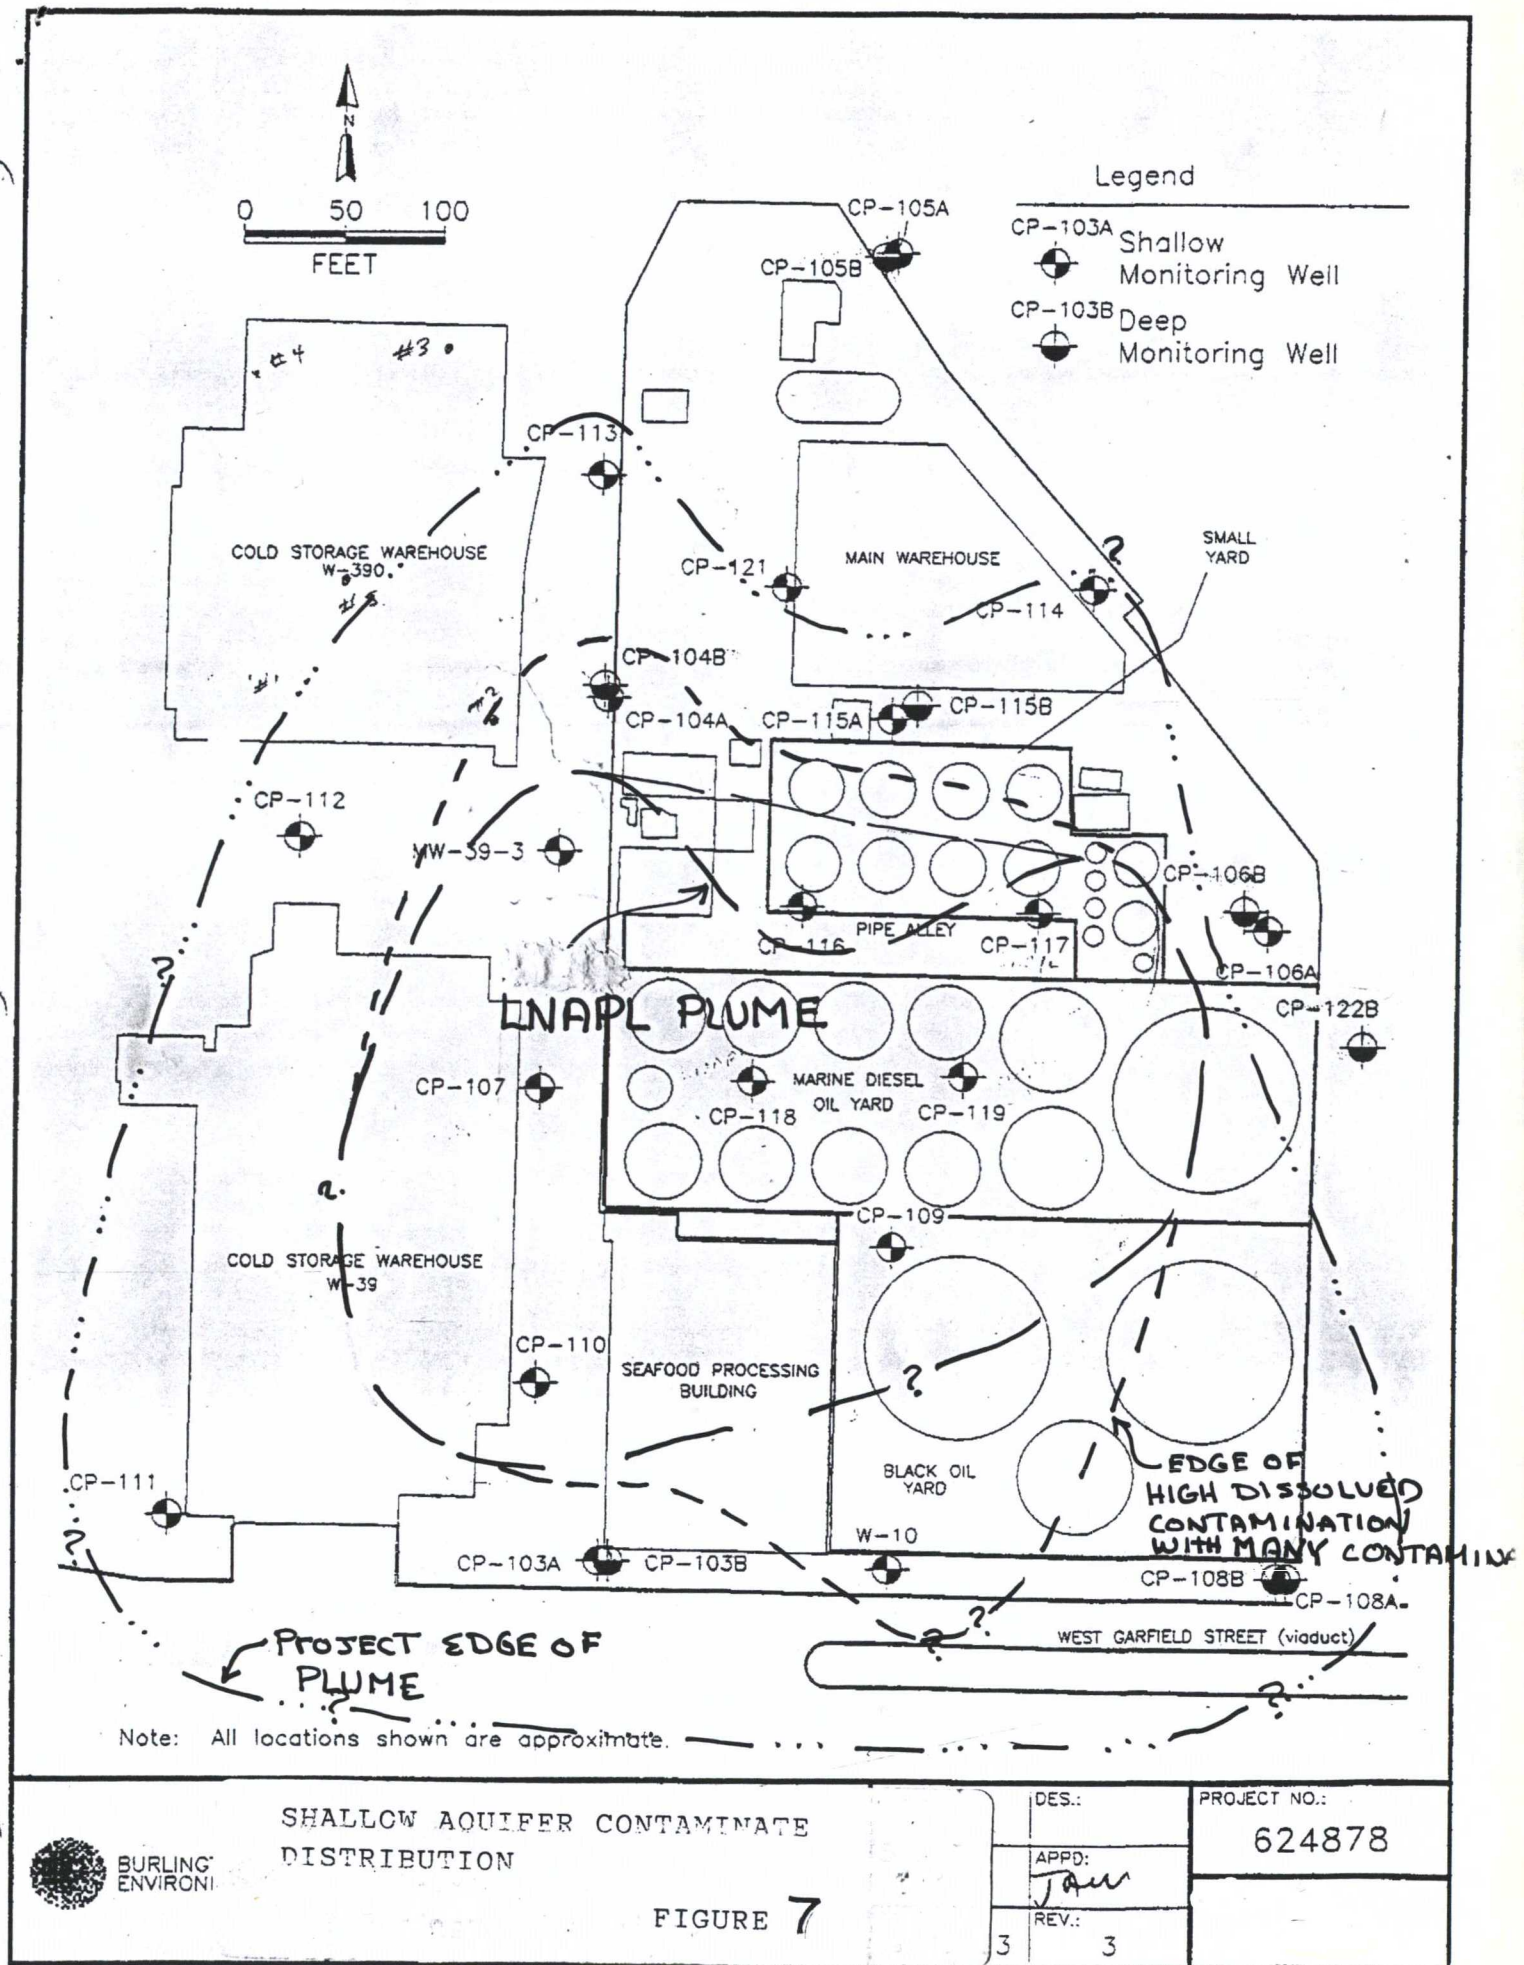 N
0 50 100
FEET
Legend
CP-103A Shallow
Monitoring Well
CP-103B Deep
Monitoring Well
CP-105A
CP-105B
#4
#3
CP-113
COLD STORAGE WAREHOUSE
W-390
CP-121
MAIN WAREHOUSE
CP-114
?
SMALL
YARD
CP-104B
CP-104A
#1
#2
CP-115A
CP-115B
CP-112
MW-39-3
CP-106B
CP-116
PIPE ALLEY
CP-117
CP-106A
?
LNAPL PLUME
CP-122B
CP-107
MARINE DIESEL
OIL YARD
CP-118
CP-119
?
CP-109
COLD STORAGE WAREHOUSE
W-39
CP-110
SEAFOOD PROCESSING
BUILDING
?
CP-111
BLACK OIL
YARD
EDGE OF
HIGH DISSOLVED
CONTAMINATION
WITH MANY CONTAMINA
?
W-10
CP-103A
CP-103B
CP-108B
CP-108A
PROJECT EDGE OF
PLUME
?
?
WEST GARFIELD STREET (viaduct)
?
?
Note: All locations shown are approximate.
BURLING
ENVIRON
SHALLOW AQUIFER CONTAMINATE
DISTRIBUTION
FIGURE 7
3
DES.:
APPD:
JAW
REV.:
3
PROJECT NO.:
624878